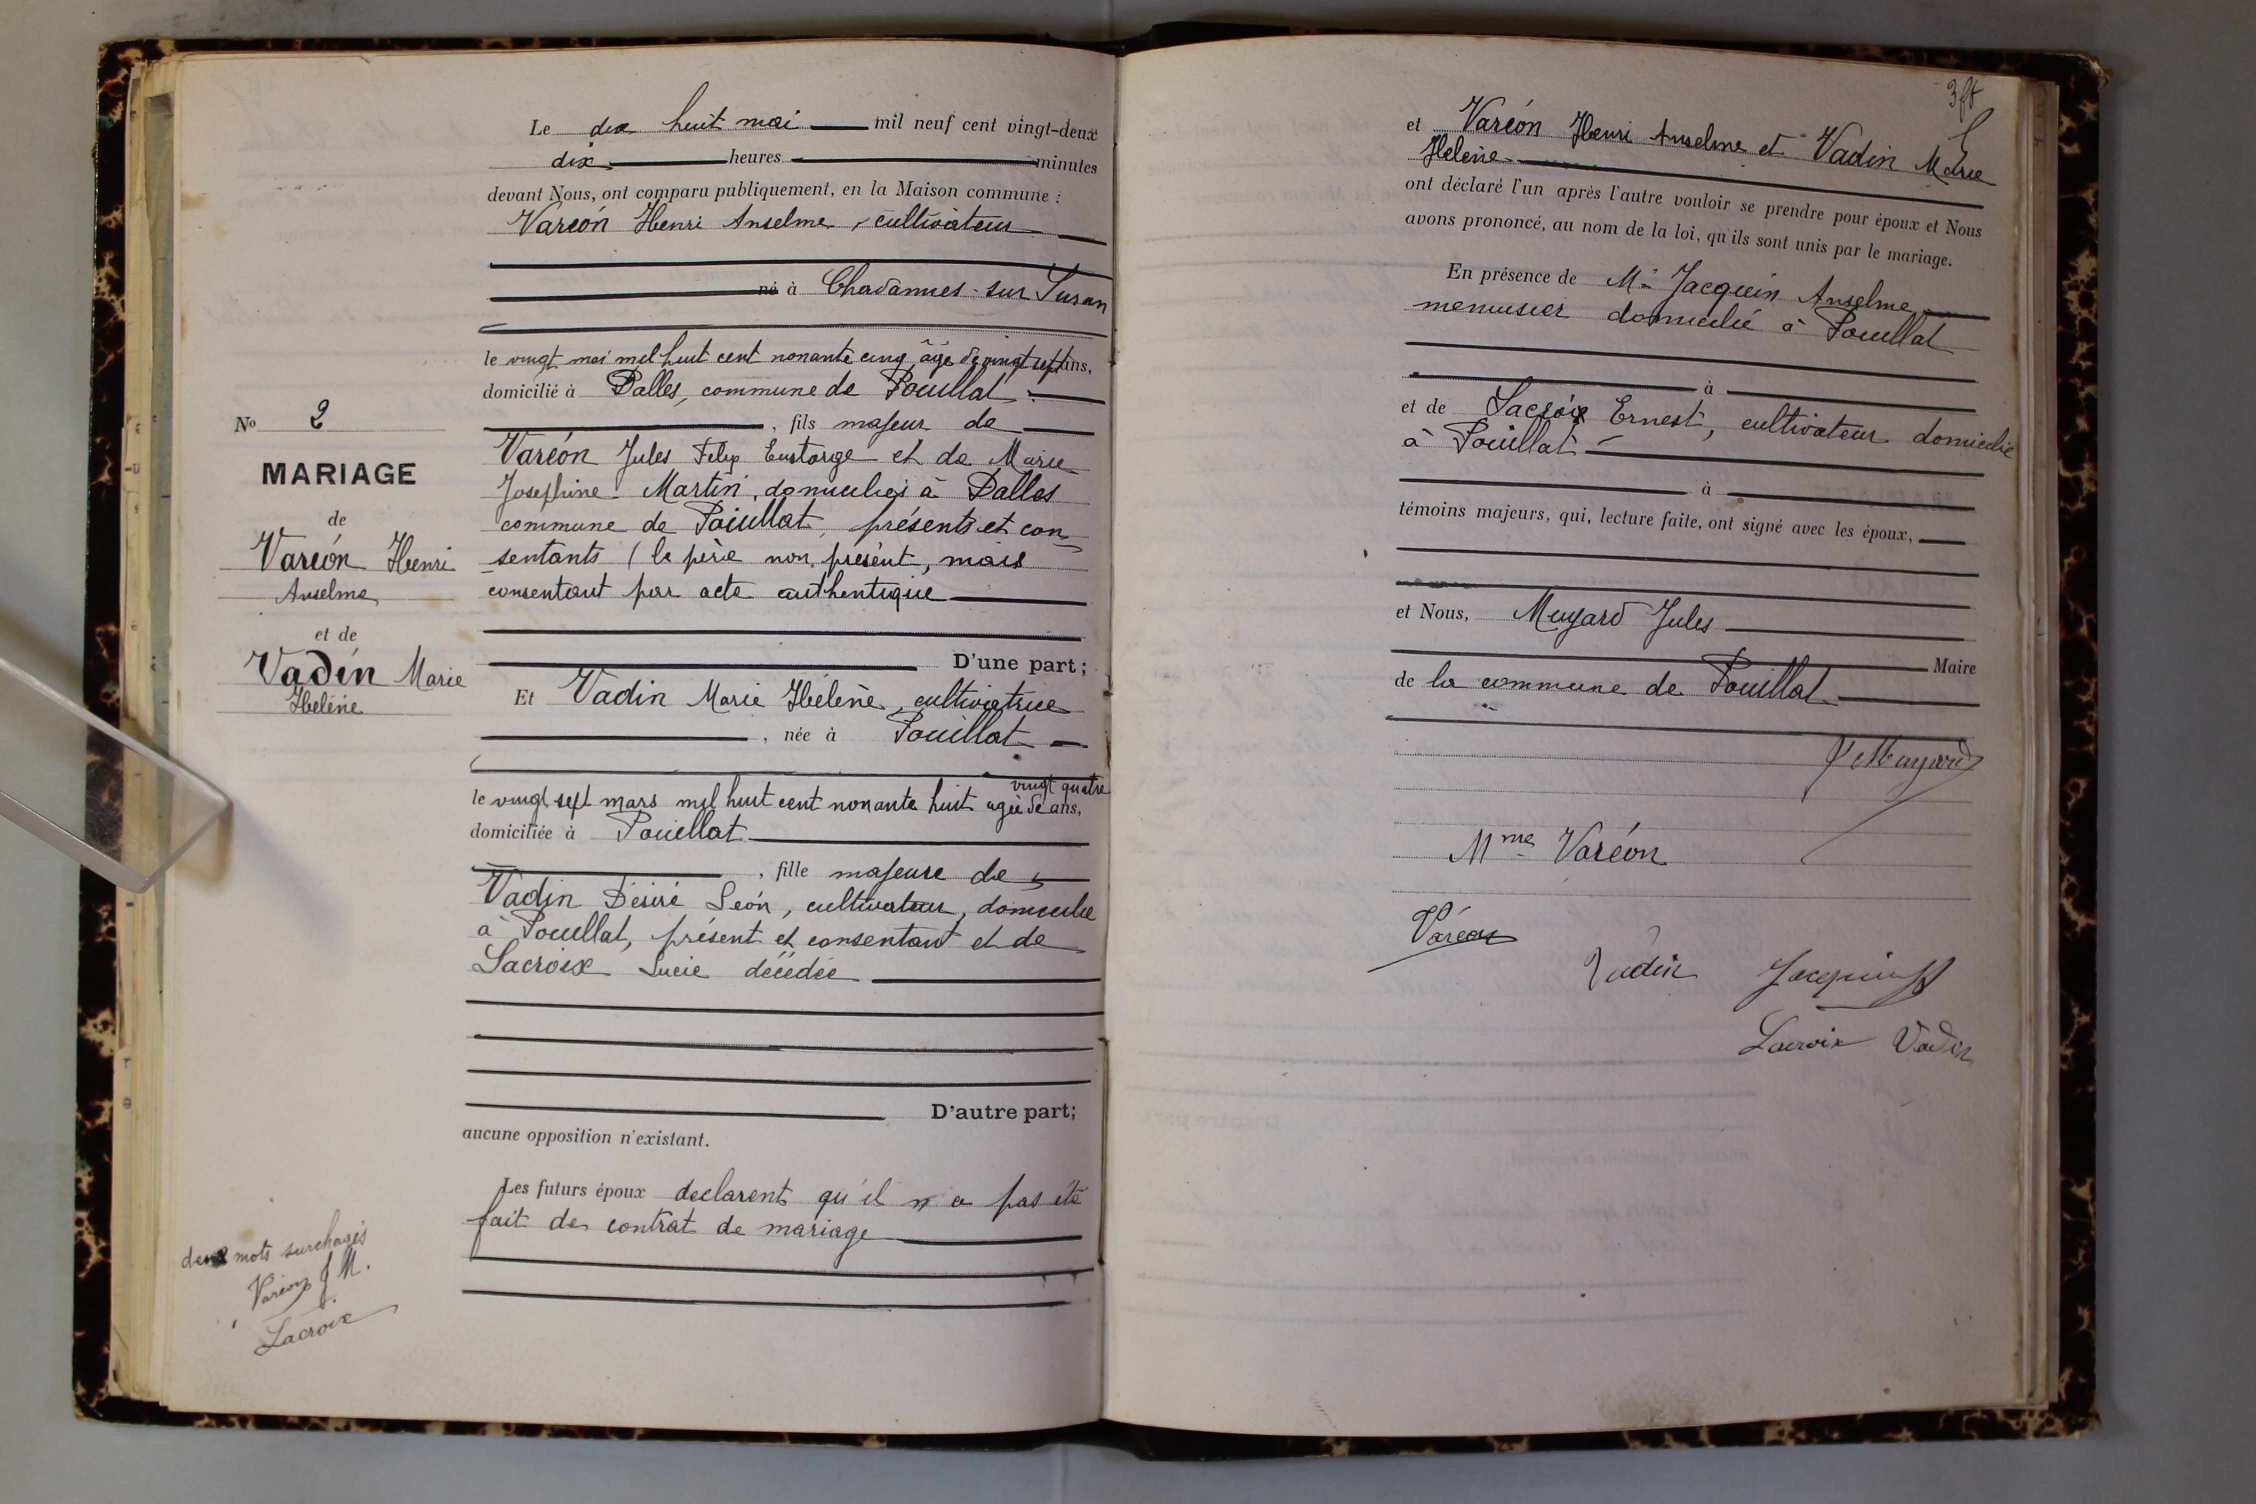 Le dix huit mai mil neuf cent vingt-deux
dix heures minutes
devant Nous, ont comparu publiquement, en la Maison commune :
Varéon Henri Anselme, cultivateur
né à Chavannes-sur Suran
le vingt mai mil huit cent nonante cinq âgé de vingt sept ans,
domicilié à Dalles, commune de Pouillat
, fils majeur de
Varéon Jules Felix Eustorge et de Marie
Josephine Martin, domiciliés à Dalles
commune de Pouillat, présents et con
sentants (le père non présent, mais
consentant par acte authentique
D'une part;
Et Vadin Marie Hélène, cultivatrice
, née à Pouillat
vingt quatre
le vingt sept mars mil huit cent nonante huit agée de ans,
domiciliée à Pouillat
, fille majeure de
Vadin Désiré Léon, cultivateur, domicilié
à Pouillat, présent et consentant et de
Lacroix Lucie décédée
D'autre part;
aucune opposition n'existant.
Les futurs époux declarent qu'il n a pas été
fait de contrat de mariage
No 2
MARIAGE
de
Varéon Henri
Anselme
et de
Vadin Marie
Hélène
deux mots surchagés
Varéon J M.
Lacroix
et Varéon Henri Anselme et Vadin Marie
Helène
ont déclaré l'un après l'autre vouloir se prendre pour époux et Nous
avons prononcé, au nom de la loi, qu'ils sont unis par le mariage.
En présence de Mr Jacquin Anselme
menuisier domicilié à Pouillat
à
et de Lacroix Ernest, cultivateur domicilié
à Pouillat
à
témoins majeurs, qui, lecture faite, ont signé avec les époux,
et Nous, Muyard Jules
Maire
de la commune de Pouillat
J Muyard
Mme Varéon
Varéon
Vadin Jacquin
Lacroix Vadin